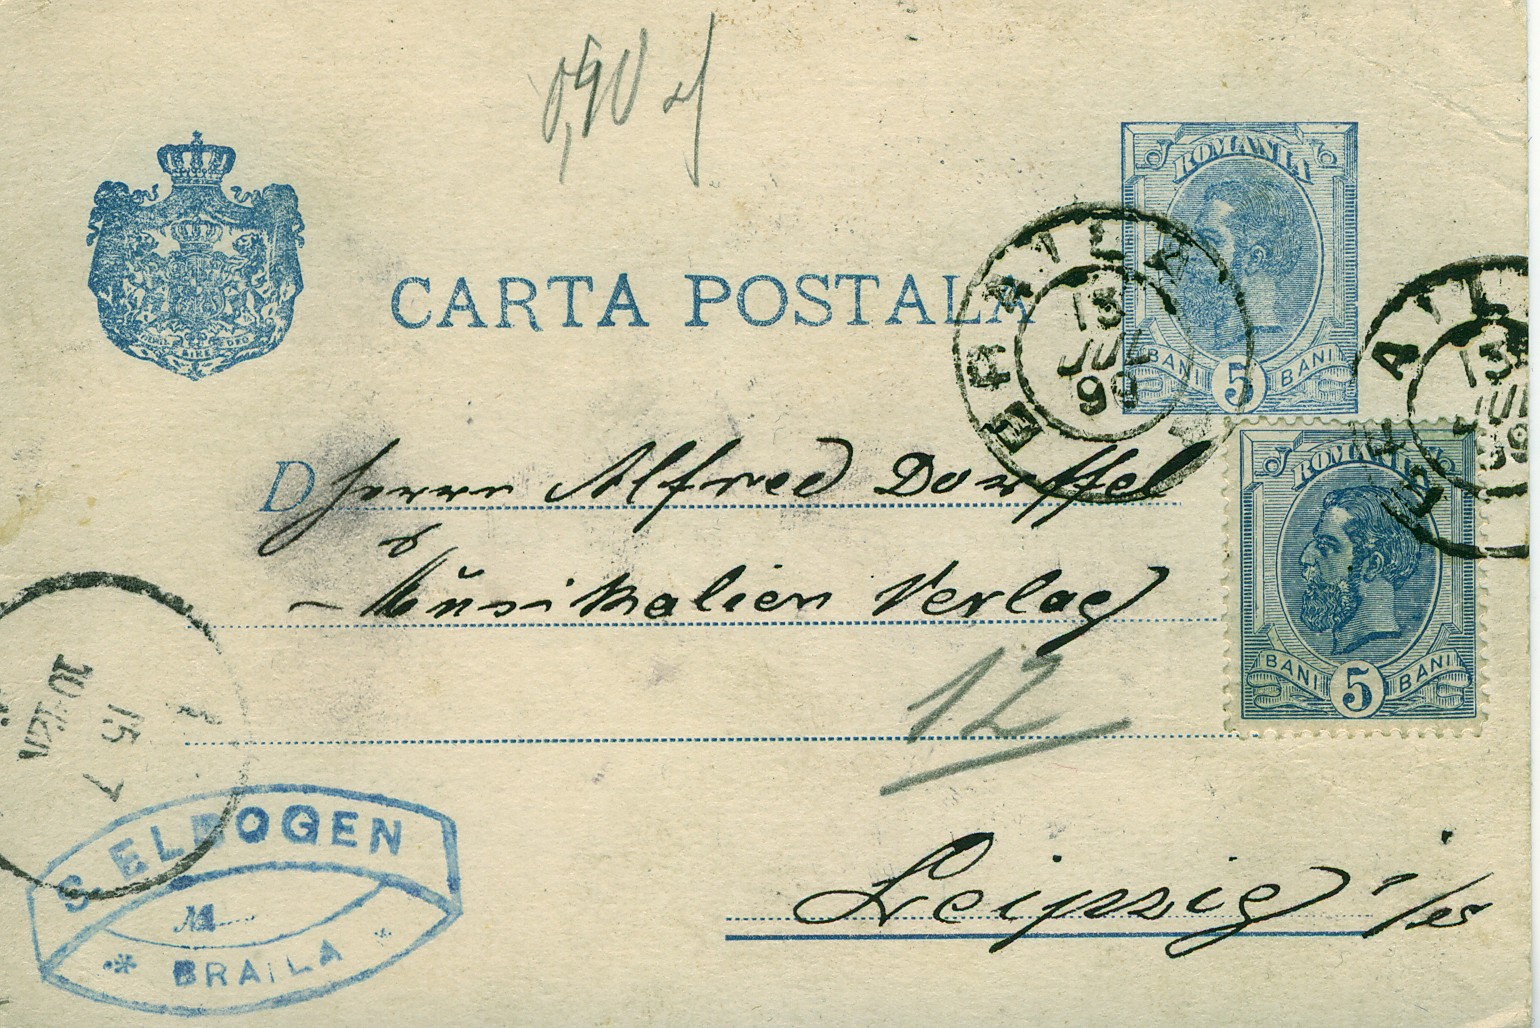 0,90
ROMANIA
CARTA POSTALA
BRAILA
13
JUL
99
BANI 5 BANI
BRAILA
13
JUL
99
ROMANIA
D
Herrn Alfred Dörffel
Musikalien Verlag
BANI 5 BANI
12
15 7
S. ELBOGEN
BRAILA
Leipzig i/s